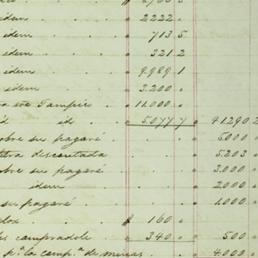 idem . . 2222 .
idem . . 713 5
idem . . 321 2
idem . . 9,989 1
idem . . 3.200 .
en Tampico . . 11.000 .
id id . . 5.077 7 41290 2
sobre su pagaré . . 5.000 .
letra descontada . . 5.203 .
sobre su pagaré . . 3.000 .
idem . . 2000 .
su pagaré . . 1.000 .
160 .
340 . 500 .
pª la compª de minas . . 4.000 .